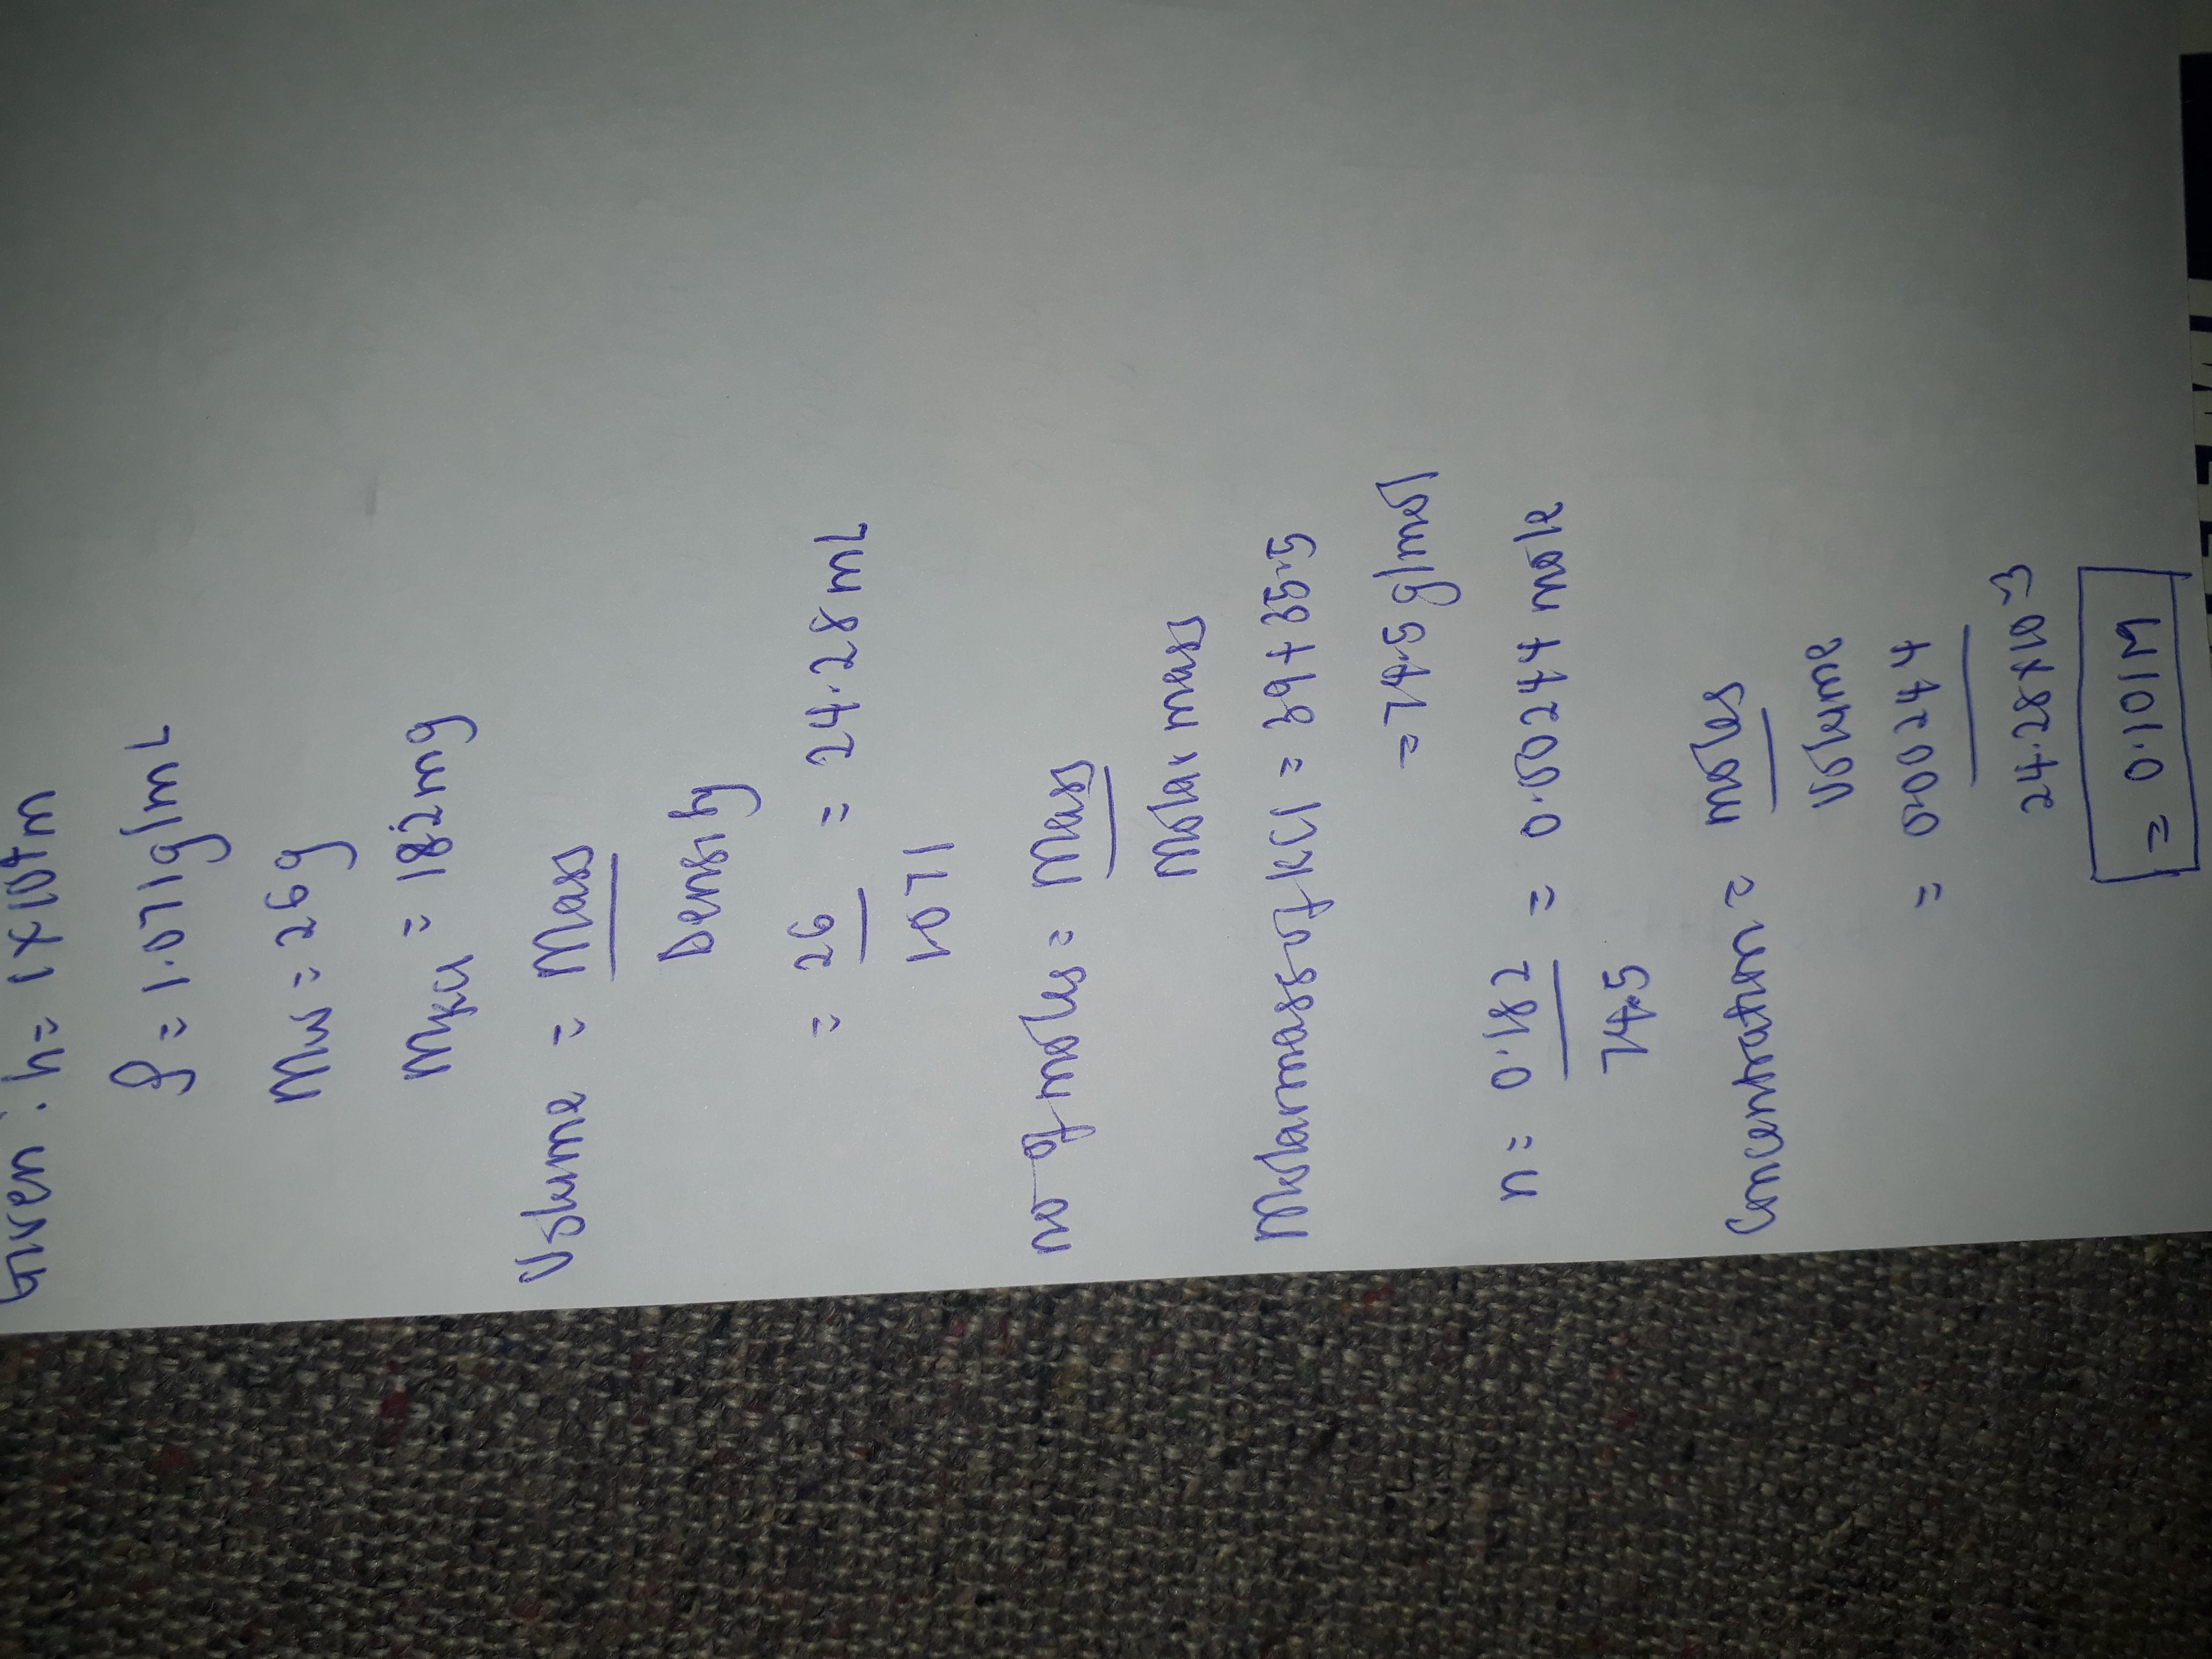 Given : h = 1 × 10⁴ m
ρ = 1.071 g/mL
Mw = 26 g
MKCl = 182 mg
Volume = Mass
Density
= 26 = 24.28 mL
1.071
no of moles = Mass
Molar mass
Molar mass of KCl = 39 + 35.5
= 74.5 g/mol
n = 0.182 = 0.00244 mole
74.5
Concentration = moles
Volume
= 0.00244
24.28 × 10⁻³
= 0.101 M